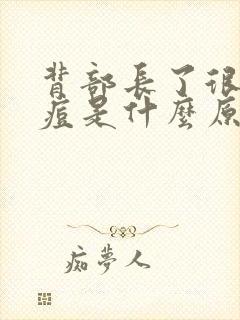 背部長了很
痘是什麼原
痴夢人